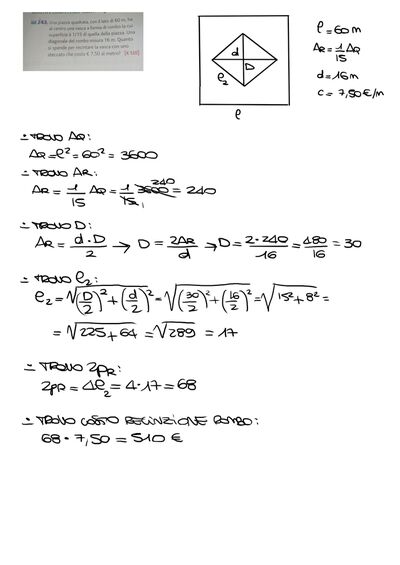 243. Una piazza quadrata, con il lato di 60 m, ha
al centro una vasca a forma di rombo la cui
superficie è 1/15 di quella della piazza. Una
diagonale del rombo misura 16 m. Quanto
si spende per recintare la vasca con uno
steccato che costa € 7,50 al metro? [€ 510]
d
D
ℓ₂
ℓ
ℓ = 60 m
AR = 1/15 AQ
d = 16 m
c = 7,50 €/m
∸ TROVO AQ:
AQ = ℓ² = 60² = 3600
∸ TROVO AR:
AR = 1/15 AQ = 1/15 3600 = 240
240
1
∸ TROVO D:
AR = d·D/2 → D = 2AR/d → D = 2·240/16 = 480/16 = 30
∸ TROVO ℓ₂:
ℓ₂ = √(D/2)² + (d/2)² = √(30/2)² + (16/2)² = √15² + 8² =
= √225 + 64 = √289 = 17
∸ TROVO 2pR:
2pR = 4ℓ₂ = 4·17 = 68
∸ TROVO COSTO RECINZIONE ROMBO:
68 · 7,50 = 510 €